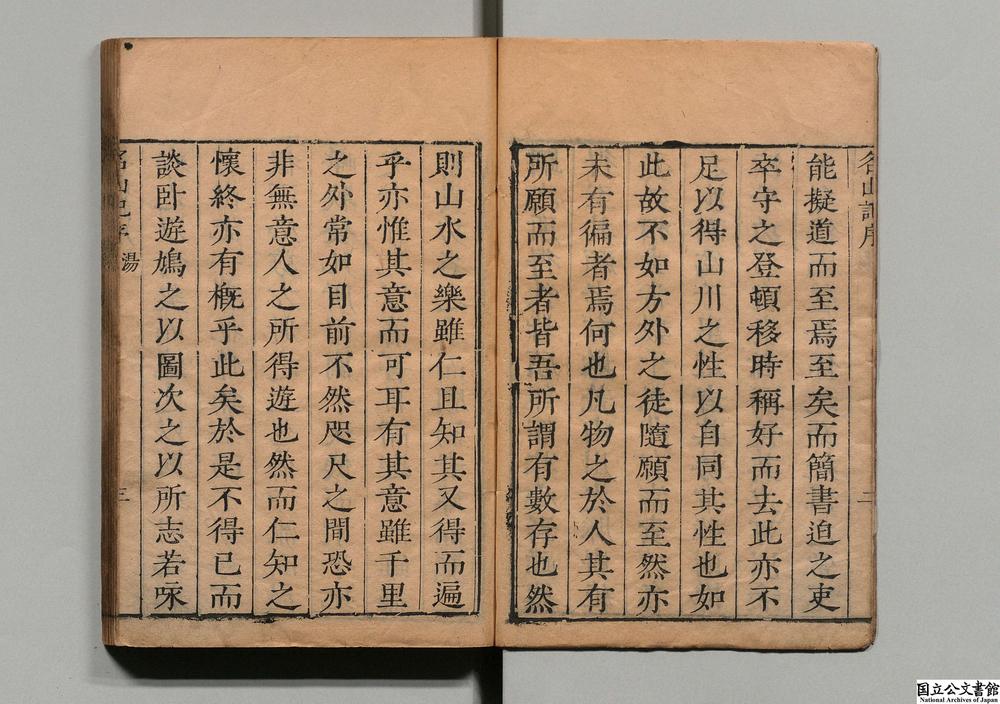 名山記序
二
能擬道而至焉至矣而簡書迫之吏
卒守之登頓移時稱好而去此亦不
足以得山川之性以自同其性也如
此故不如方外之徒隨願而至然亦
未有徧者焉何也凡物之於人其有
所願而至者皆吾所謂有數存也然
則山水之樂雖仁且知其又得而遍
乎亦惟其意而可耳有其意雖千里
之外常如目前不然咫尺之間恐亦
非無意人之所得遊也然而仁知之
懷終亦有概乎此矣於是不得已而
談卧遊鳩之以圖次之以所志若咏
名山記序
湯
三
国立公文書館
National Archives of Japan